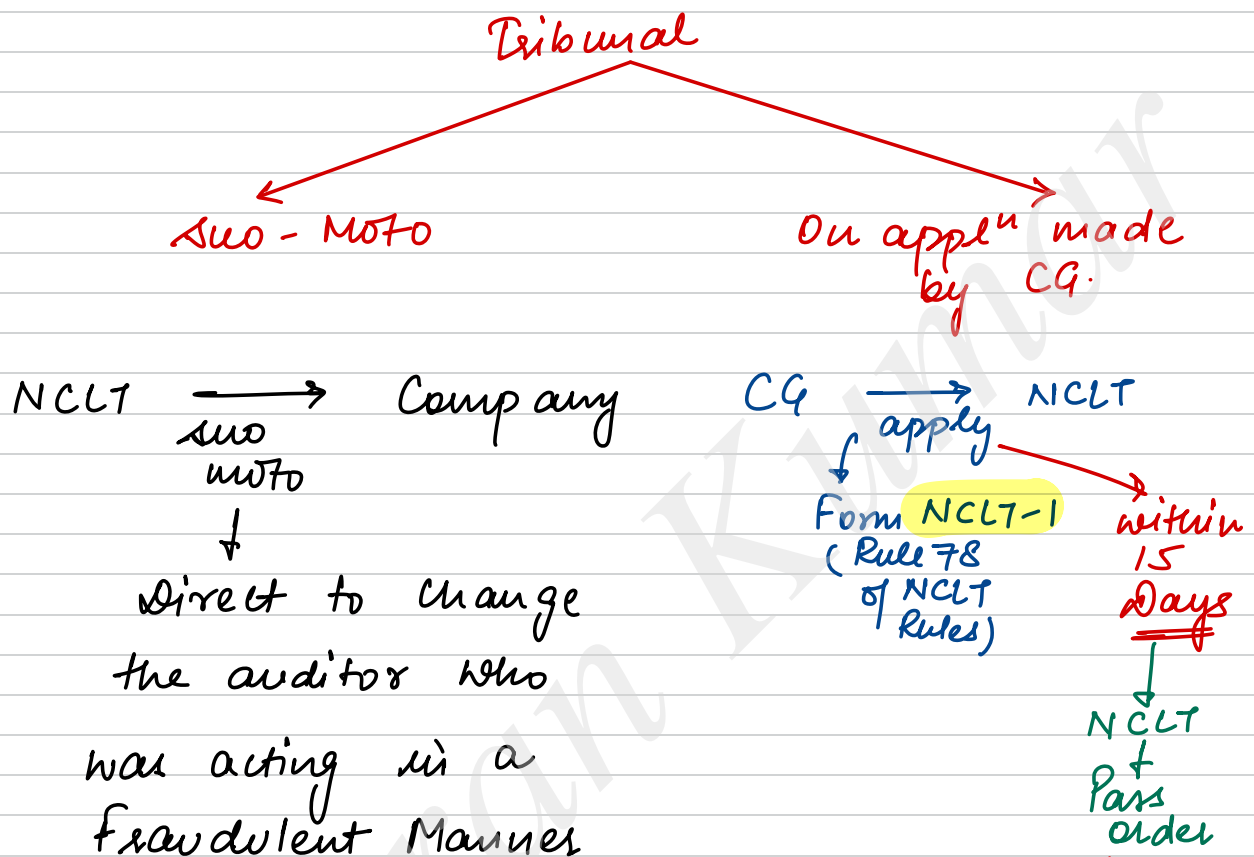 Tribunal
Suo-Moto
On appln made
by CG.
NCLT → Company
suo
moto
Direct to change
the auditor who
was acting in a
fraudulent Manner
CG → NCLT
apply
Form NCLT-1
(Rule 78
of NCLT
Rules)
within
15
Days
NCLT
Pass
order
Kumar